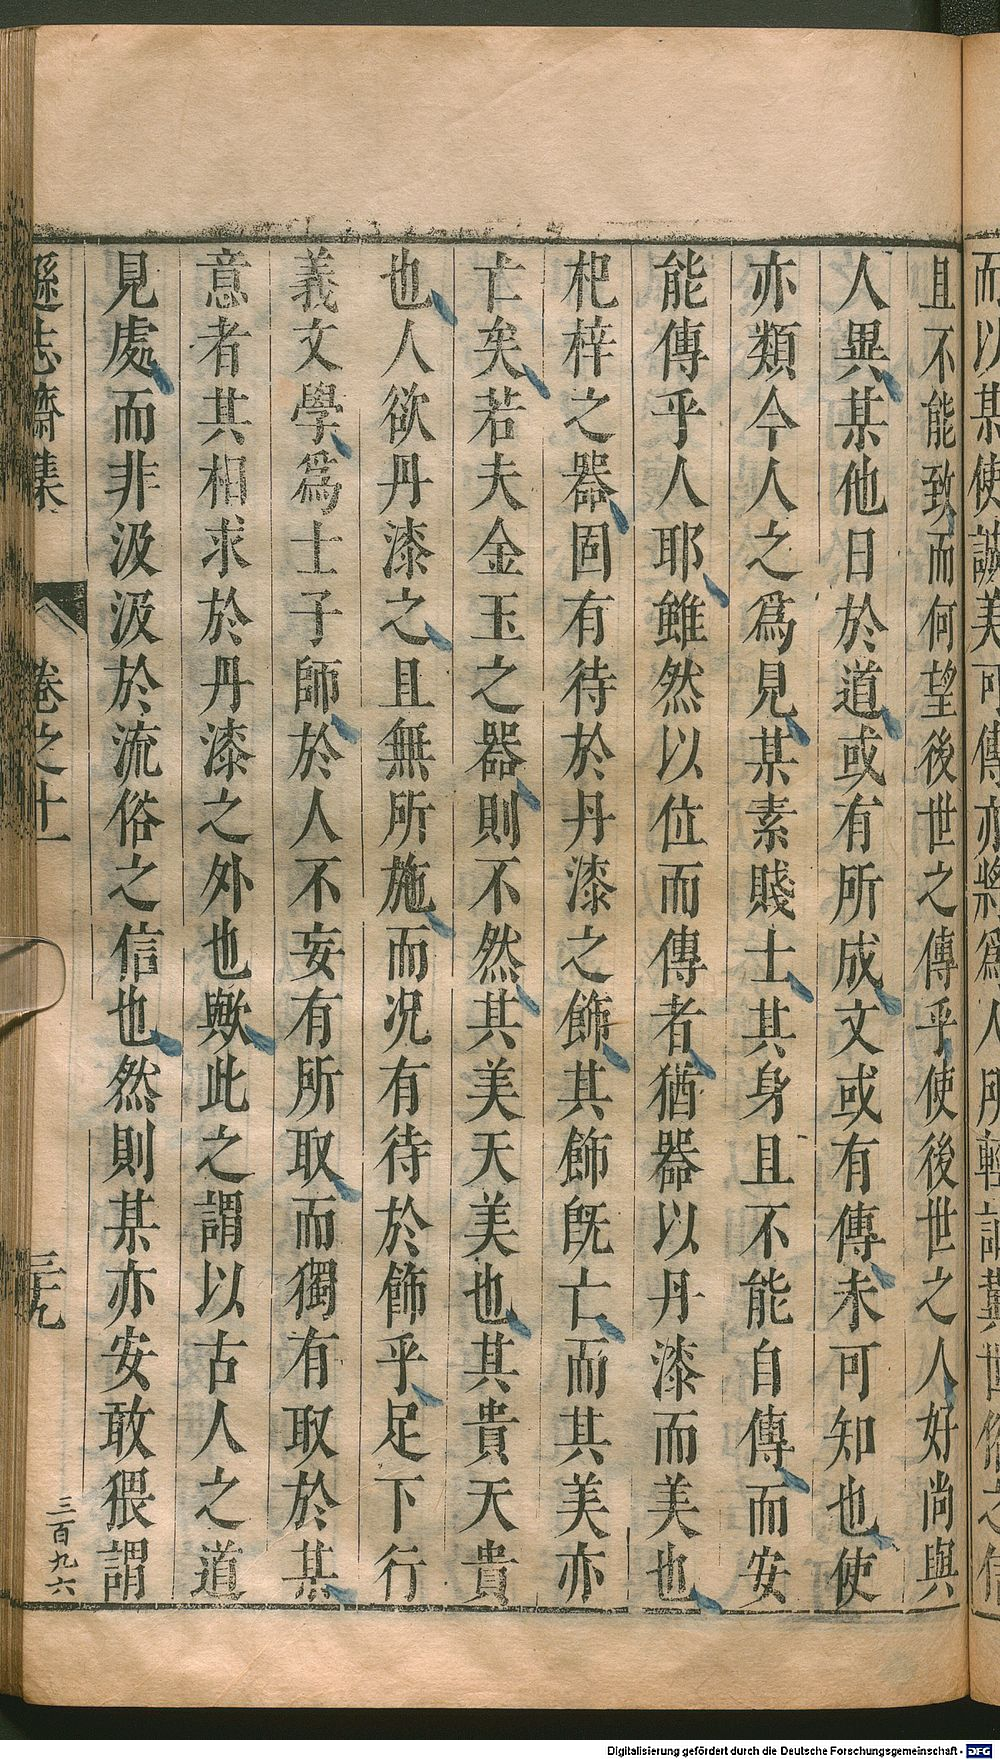 而以某使誠美可傳亦將為人所輕詆冀世俗之信
且不能致而何望後世之傳乎使後世之人好尚與
人異某他日於道或有所成文或有傳未可知也使
亦類今人之為見某素賤士其身且不能自傳而安
能傳乎人耶雖然以位而傳者猶器以丹漆而美也
杞梓之器固有待於丹漆之飾其飾旣亡而其美亦
亡矣若夫金玉之器則不然其美天美也其貴天貴
也人欲丹漆之且無所施而况有待於飾乎足下行
義文學為士子師於人不妄有所取而獨有取於某
意者其相求於丹漆之外也歟此之謂以古人之道
見處而非汲汲於流俗之信也然則某亦安敢猥謂
遜志齋集 卷之十一 三九 三百九六
Digitalisierung gefördert durch die Deutsche Forschungsgemeinschaft - DFG